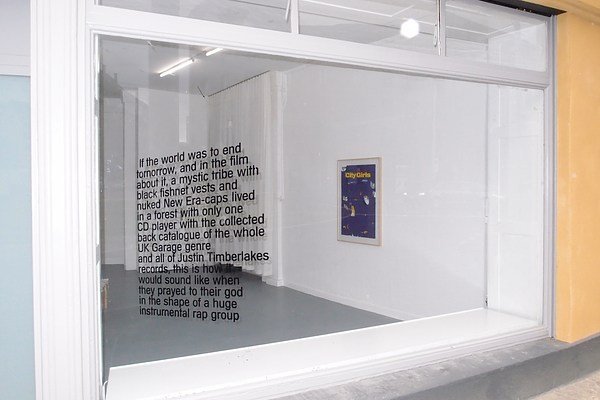 If the world was to end
tomorrow, and in the film
about it, a mystic tribe with
black fishnet vests and
nuked New Era-caps lived
in a forest with only one
CD player with the collected
back catalogue of the whole
UK Garage genre
and all of Justin Timberlakes
records, this is how it
would sound like when
they prayed to their god
in the shape of a huge
instrumental rap group
City Girls